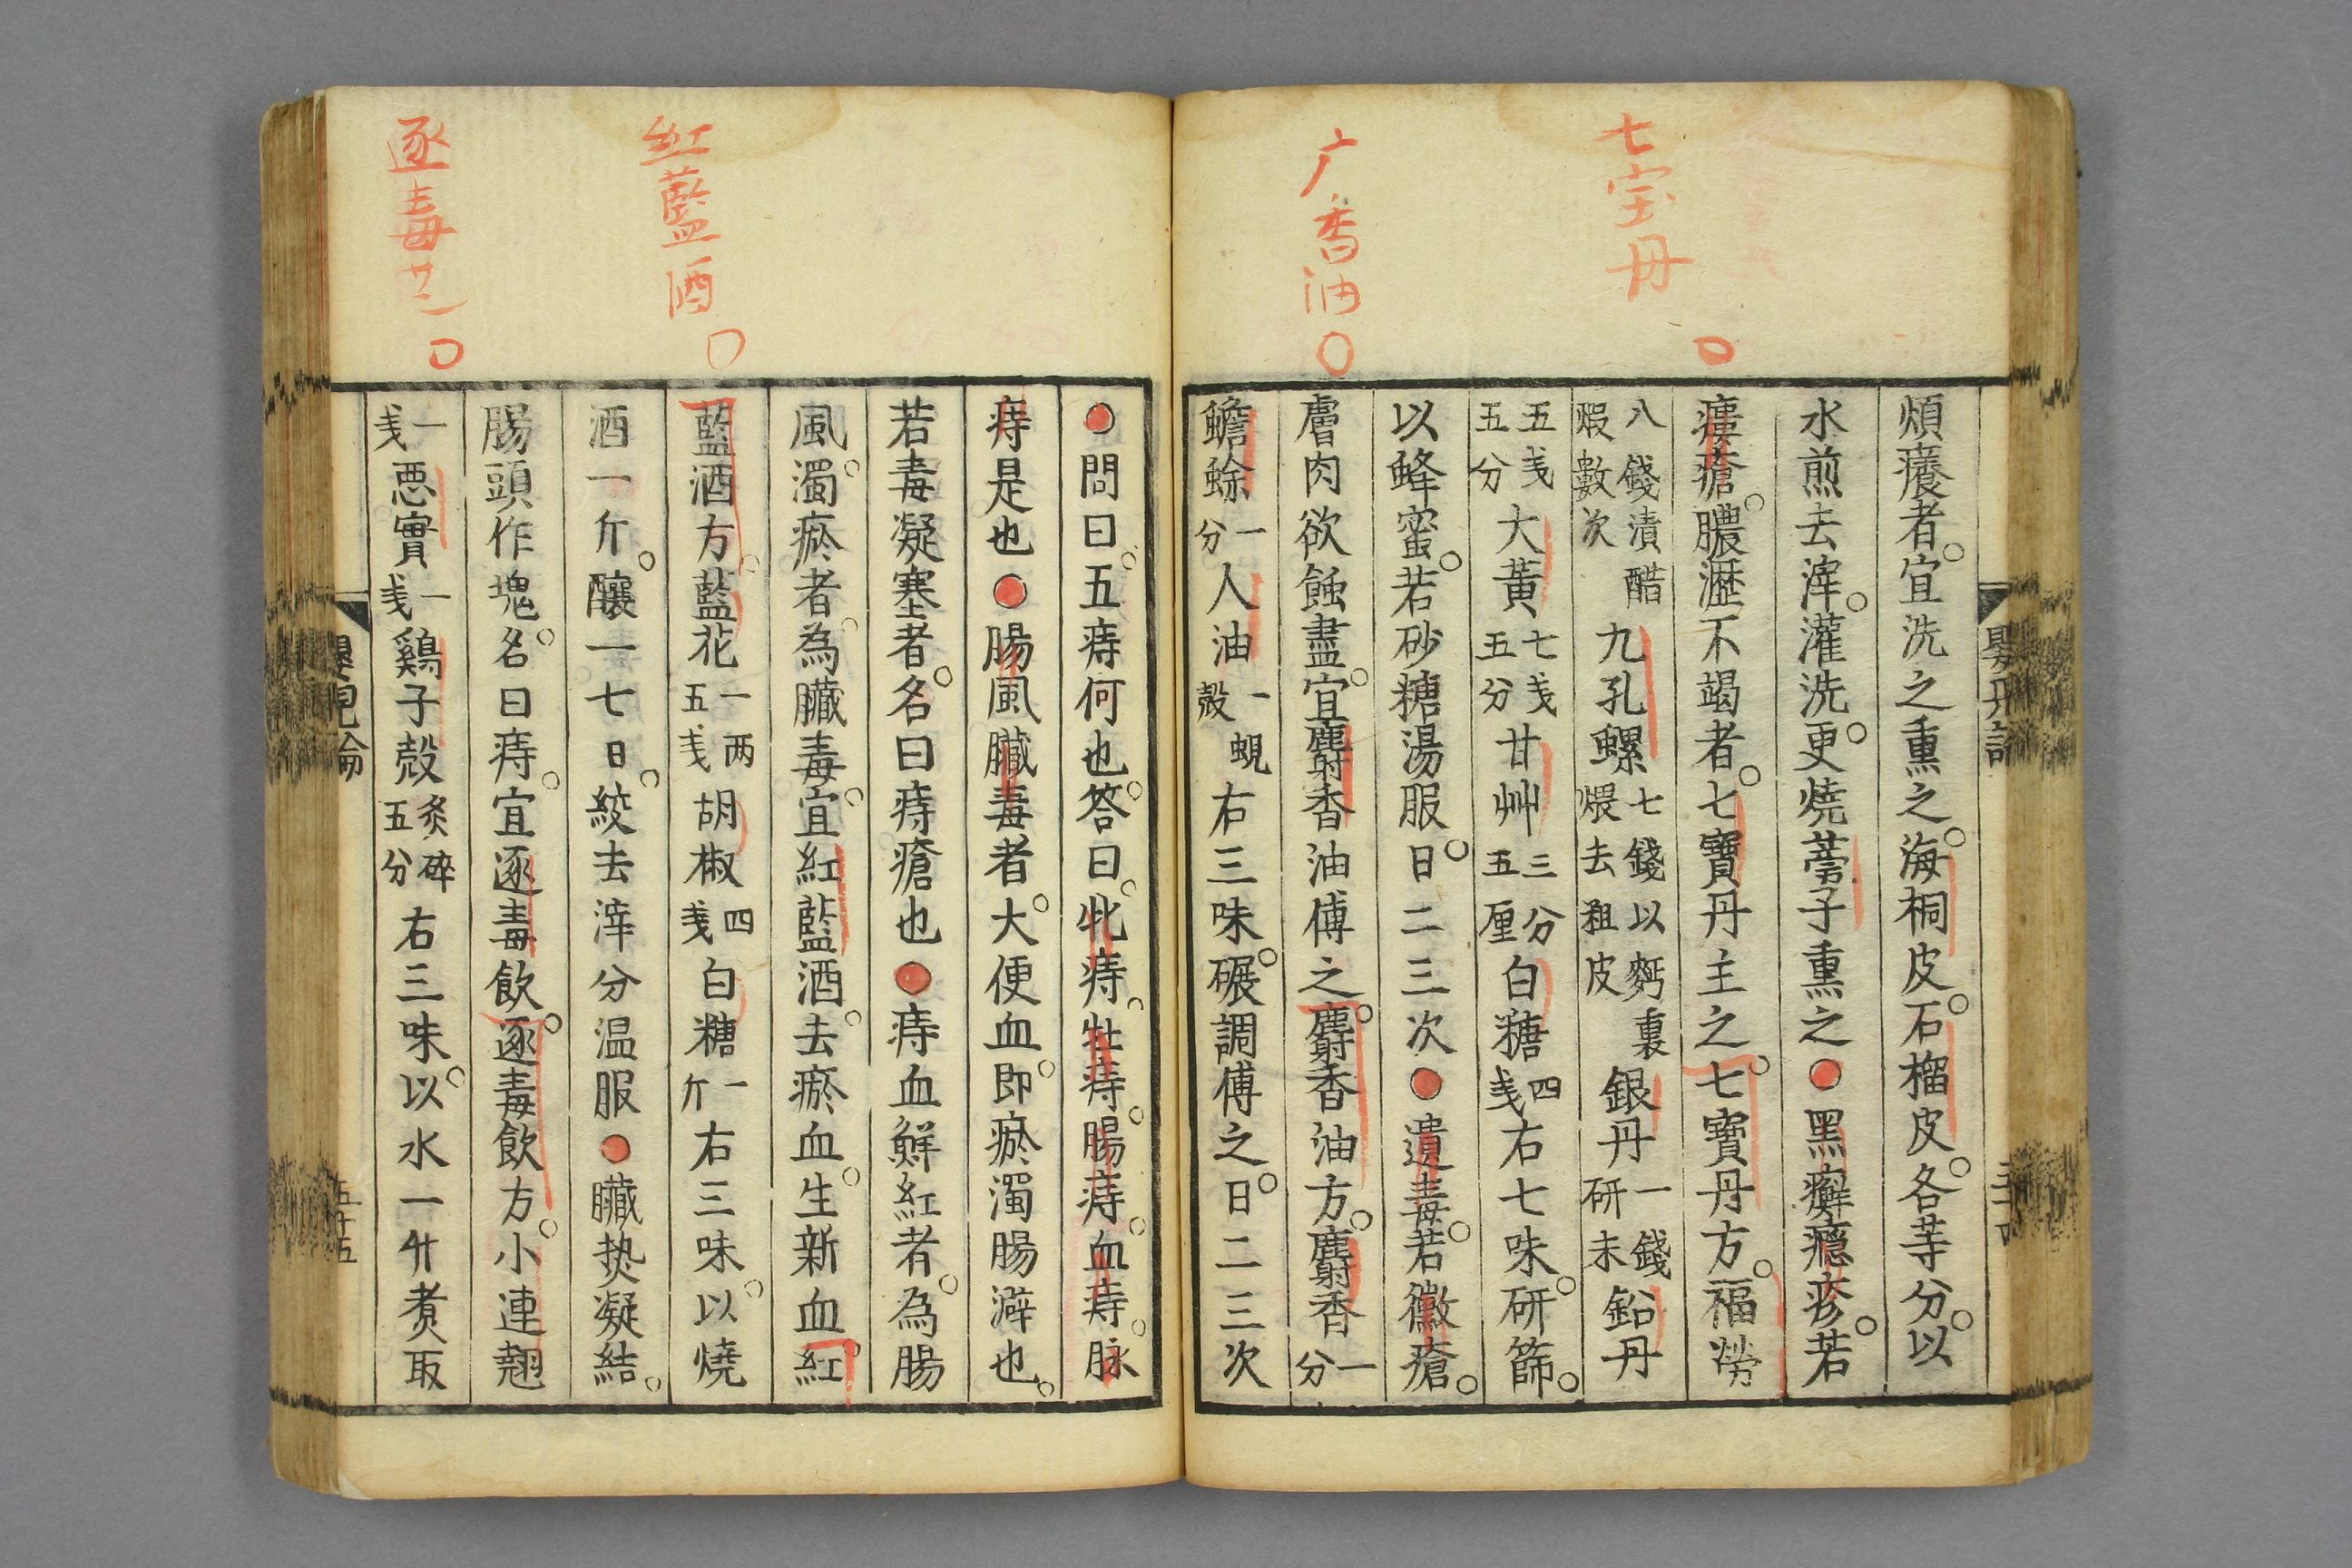 七宝丹
广香油
煩癢者。宜洗之熏之。海桐皮。石榴皮。各等分。以
水煎去滓。灌洗。更燒蒡子熏之●黑癬癮疹。若
瘻瘡。膿瀝不竭者。七寶丹主之。七寶丹方。福勞
八錢漬醋煆數次九孔螺七錢以麪裏煨去粗皮銀丹一錢研末鉛丹
五戔五分大黃七戔五分甘艸三分五厘白糖四戔右七味。研篩。
以蜂蜜。若砂糖湯服。日二三次●遺毒。若黴瘡。
膚肉欲蝕盡。宜麝香油傅之。麝香油方。麝香一分
蟾蜍一分人油一蜆殼右三味。碾調傅之。日二三次
紅藍酒
逐毒
●問曰。五痔何也。答曰。牝痔。牡痔。腸痔。血痔。脉
痔是也●腸風臟毒者。大便血即。瘀濁腸澼也。
若毒凝塞者。名曰痔瘡也●痔血鮮紅者。為腸
風。濁瘀者。為臟毒。宜紅藍酒。去瘀血。生新血。紅
藍酒方。藍花一两五戔胡椒四戔白糖一斤右三味。以燒
酒一斤。釀一七日。絞去滓分温服●臟热凝結。
腸頭作塊。名曰痔。宜逐毒飲。逐毒飲方。小連翹
一戔惡實一戔鷄子殼炙碎五分右三味。以水一升煑取
五十五